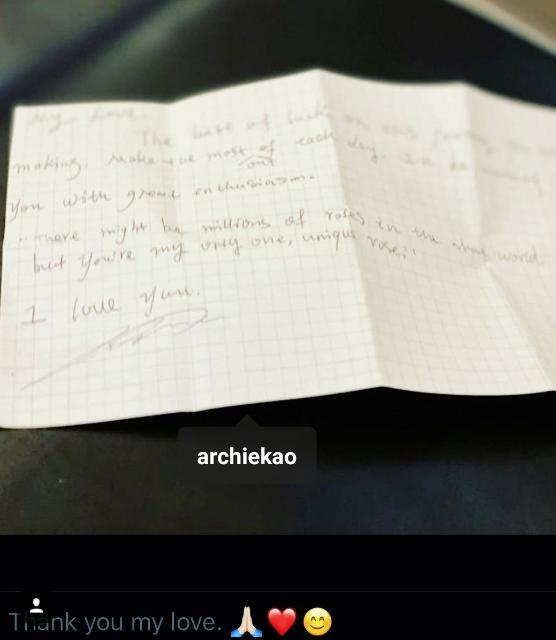 My Love,
The best of luck on this
making. Make the most of each day. I'll be
out
You with great enthusiasm.
"There might be millions of roses in the whole world,
but You're my only one, unique rose;"
I love You.
archiekao
Thank you my love. 🙏🏻❤️😊